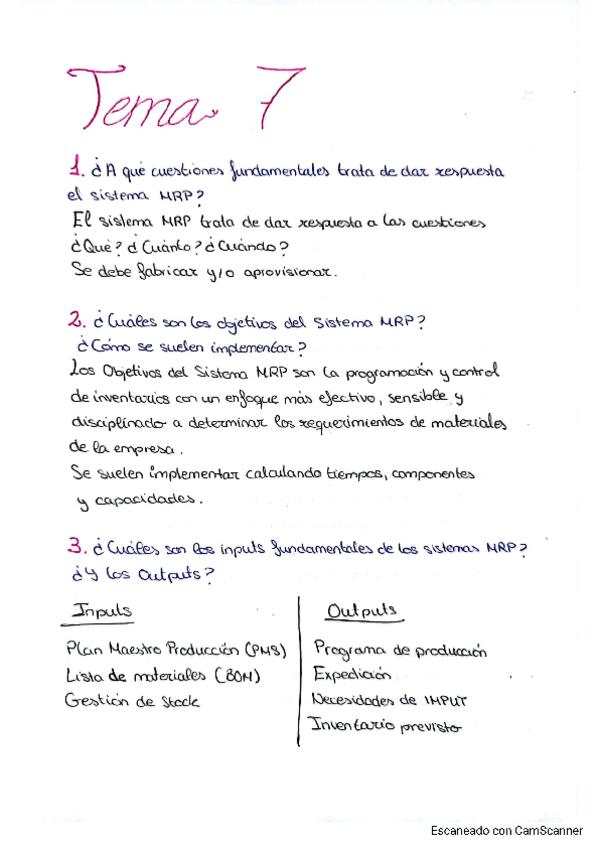 Tema 7
1. ¿A qué cuestiones fundamentales trata de dar respuesta
el sistema MRP?
El sistema MRP trata de dar respuesta a las cuestiones
¿Qué? ¿Cuánto? ¿Cuándo?
Se debe fabricar y/o aprovisionar.
2. ¿Cuáles son los objetivos del Sistema MRP?
¿Cómo se suelen implementar?
Los Objetivos del Sistema MRP son la programación y control
de inventarios con un enfoque más efectivo, sensible y
disciplinado a determinar los requerimientos de materiales
de la empresa.
Se suelen implementar calculando tiempos, componentes
y capacidades.
3. ¿Cuáles son los inputs fundamentales de los sistemas MRP?
¿Y los Outputs?
Inputs
Plan Maestro Producción (PMS)
Lista de materiales (BOM)
Gestión de Stock
Outputs
Programa de producción
Expedición
Necesidades de IMPUT
Inventario previsto
Escaneado con CamScanner